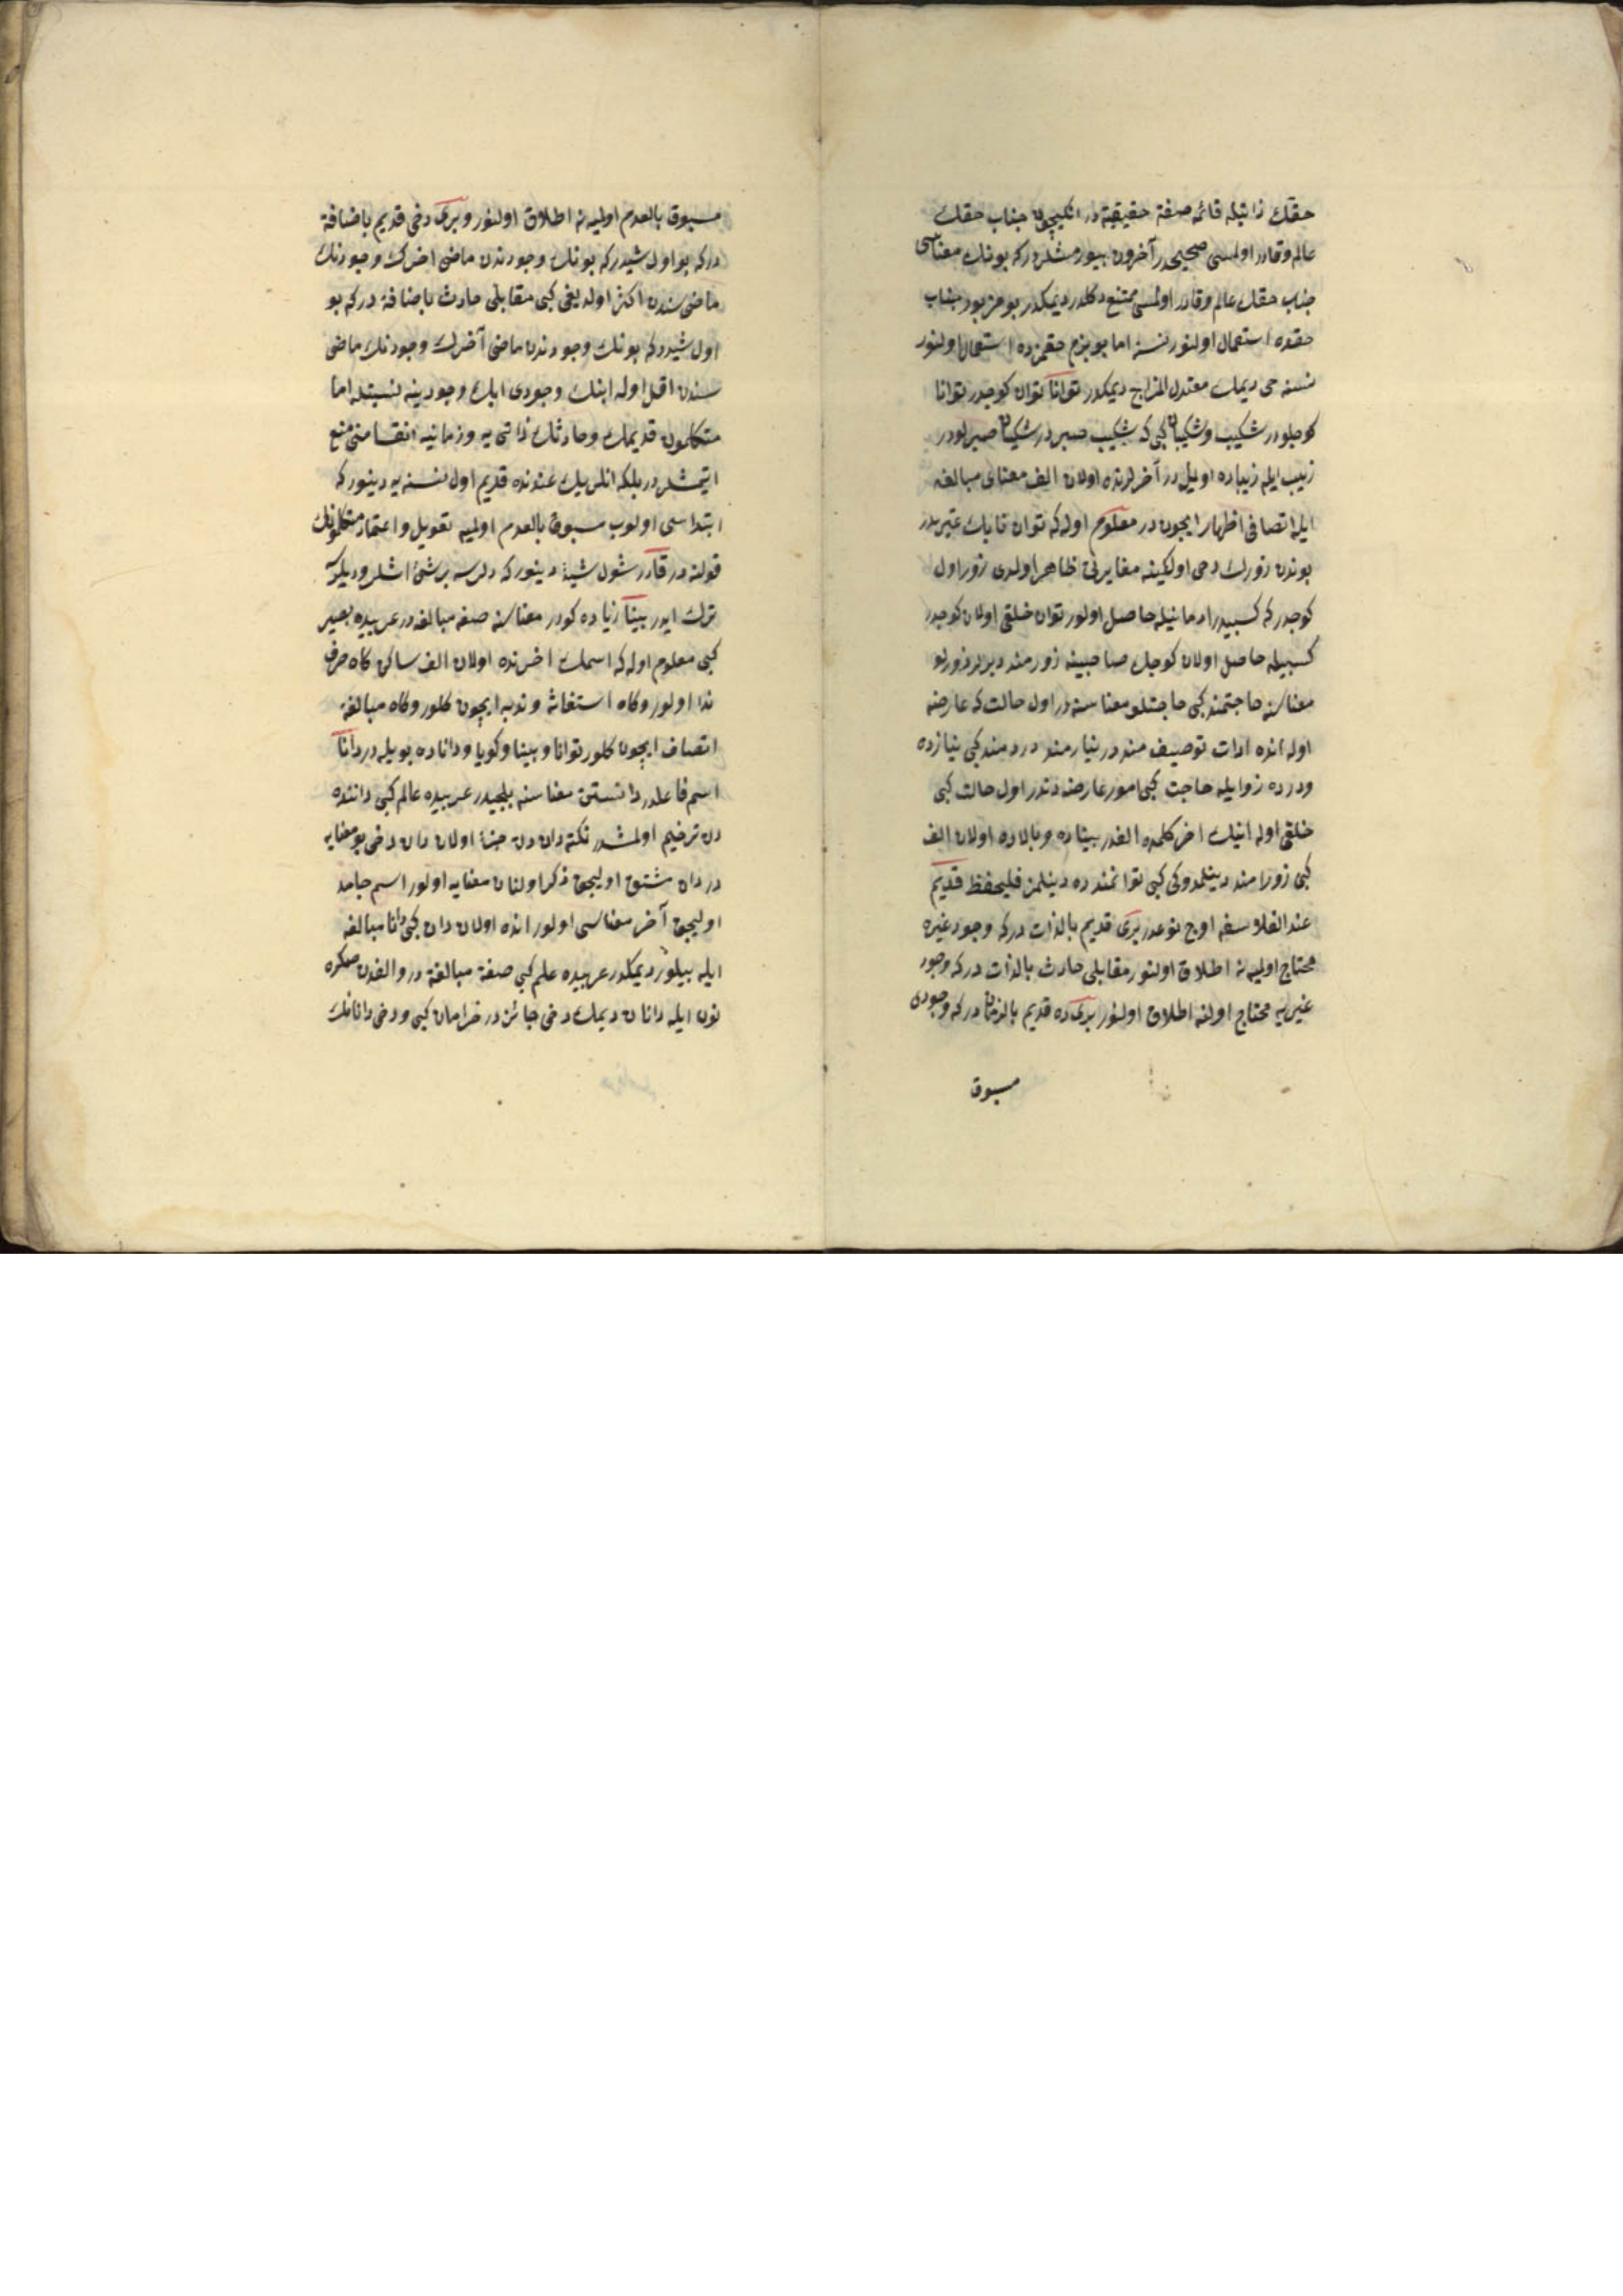 حقك ذاتيله قائمه صفة حقيقية در انكيچون جناب حقك
عالم وقادر اولمسى صحيحدر آخرون بيورمشلردركه بونك معناسى
جناب حقك عالم وقادر اولمسى ممتنع دكلدر ديمكدر بو جناب
حقده استعمال اولنور نسنه اما بو بزم حقمزده استعمال اولنور
نسنه حى ديمك معتدل المزاج ديمكدر توانا توان كوجدر توانا
كوجلودر شكيب وشكيبا كبى كه شكيب صبردر شكيبا صبرلودر
زيب ايله زيباده اويلدر آخرلرنده اولان الف معناى مبالغه
ايله اتصافى اظهار ايچوندر معلوم اوله كه توان تابك غيريدر
بوندن زورك دخى اولكينه مغايرتى ظاهر اولدى زور اول
كوجدر كه كسبيدر ادمانيله حاصل اولور توان خلقى اولان كوجدر
كسبيله حاصل اولان كوجك صاحبينه زورمند ديرلر زورلو
معناسنه حاجتمند كبى حاجتلو معناسنه در اول حالت كه عارضه
اوله انده ادات توصيف مند در نيازمند دردمند كبى نيازده
ودرده زوايله حاجت كبى امور عارضه دندر اول حالت كبى
خلقى اوله انيك اخر كلمده الفدر بيناده وبالاده اولان الف
كبى زورا مند دينلمدوكى كبى توانمند ده دينلمز فليحفظ قديم
عند الفلاسفه اوج نوعدر برى قديم بالذات دركه وجود غيره
محتاج اوليه نه اطلاق اولنور مقابلى حادث بالذات دركه وجود
غيريه محتاج اولنه اطلاق اولنور برى ده قديم بالزمان دركه وجودى
مسبوق
مسبوق بالعدم اوليه نه اطلاق اولنور وبرى دخى قديم باضافة
دركه بو اول شيدركه بونك وجودندن ماضى اخرك وجودنك
ماضى سندن اكثر اولديغى كبى مقابلى حادث باضافة دركه بو
اول شيدركه بونك وجودندن ماضى آخرك وجودنك ماضى
سندن اقل اوله ابنك وجودى ابك وجودينه نسبتله اما
متكلمون قديمك وحادثك ذاتى يه وزمانيه انقسامنى منع
ايتمشلردر بلكه انلريك عندنده قديم اول نسنه يه دينور كه
ابتداسى اولوب مسبوق بالعدم اوليه تعويل واعتماد متكلمونك
قولنه در قادر شول شيئه دينور كه دلرسه بر شئ اشلر وديلرسه
ترك ايدر بينا زياده كورر معناسنه صفه مبالغه در عربيده بصير
كبى معلوم اوله كه اسمك اخرنده اولان الف ساكن كاه حرف
ندا اولور وكاه استغاثه وندبه ايچون كلور وكاه مبالغه
اتصاف ايچون كلور توانا وبينا وكويا وداناده بويله در دانا
اسم فاعلدر دانستن معناسنه بلجيدر عربيده عالم كبى داننده
دن ترخيم اولمشدر نكته دان دن اولان دان دخى بو معنايه
در دان مشتق اوليجق ذكر اولنان معنايه اولور اسم جامد
اوليجق آخر معناسى اولور انده اولان دان كبى دانا مبالغه
ايله بيلور ديمكدر عربيده علم كبى صفة مبالغة در والفدن صكره
نون ايله دانان ديمك دخى جائزدر خرامان كبى ودخى دانانك